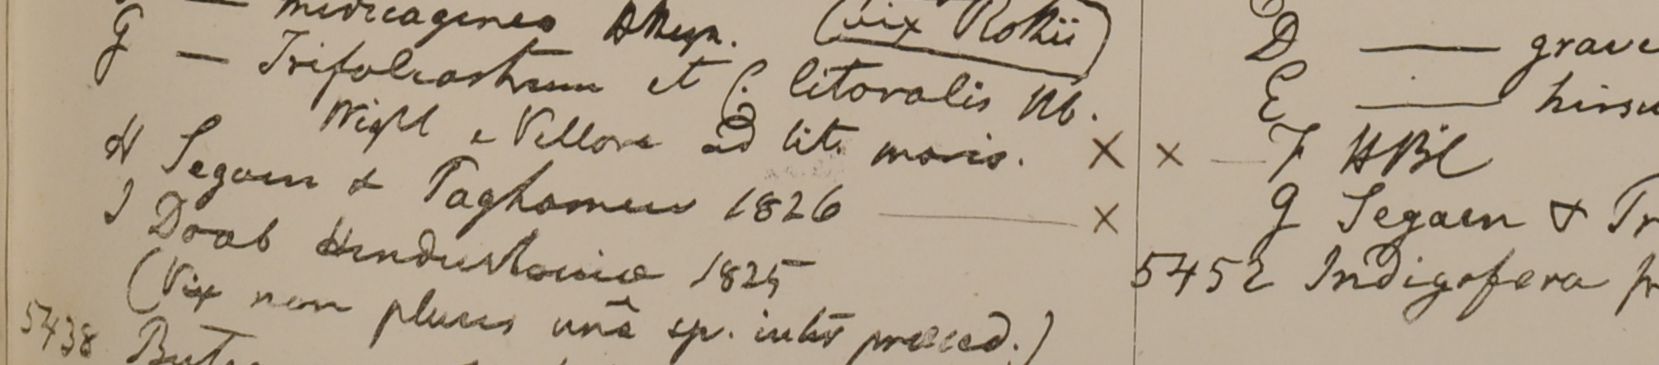 — medicaginea HHeyn. (vix Rothii)
G — Trifoliastrum et C. litoralis Hb.
Wight e Vellore ad lit. maris. ×
H Segaen & Taghamew 1826 — ×
I Doab Hindustaniae 1825
(Vix non plures unâ sp. inter praeced.)
5438 Bute
D — grave
E — hirsu
× — F HBC
G Segaen & Tr
5452 Indigofera pr